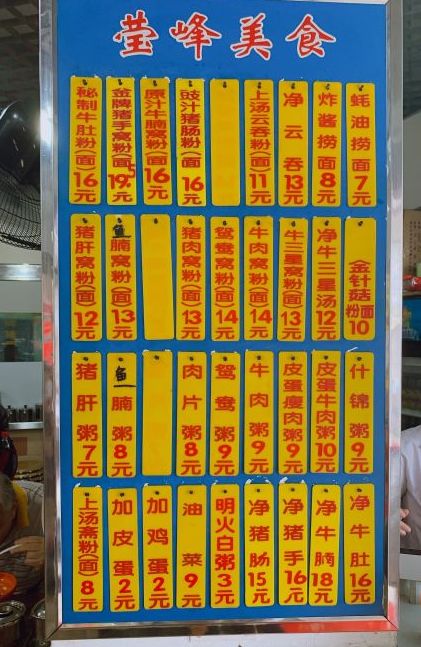 莹峰美食
秘制牛肚粉(面)16元
金牌猪手窝粉(面)19.5元
原汁牛腩窝粉(面)16元
豉汁猪肠粉(面)16元
上汤云吞粉(面)11元
净云吞13元
炸酱捞面8元
蚝油捞面7元
猪肝窝粉(面)12元
鱼腩窝粉(面)13元
猪肉窝粉(面)13元
鸳鸯窝粉(面)14元
牛肉窝粉(面)14元
牛三星窝粉(面)13元
净牛三星汤12元
金针菇粉面10
猪肝粥7元
鱼腩粥8元
肉片粥8元
鸳鸯粥9元
牛肉粥9元
皮蛋瘦肉粥9元
皮蛋牛肉粥10元
什锦粥9元
上汤斋粉(面)8元
加皮蛋2元
加鸡蛋2元
油菜9元
明火白粥3元
净猪肠15元
净猪手16元
净牛腩18元
净牛肚16元